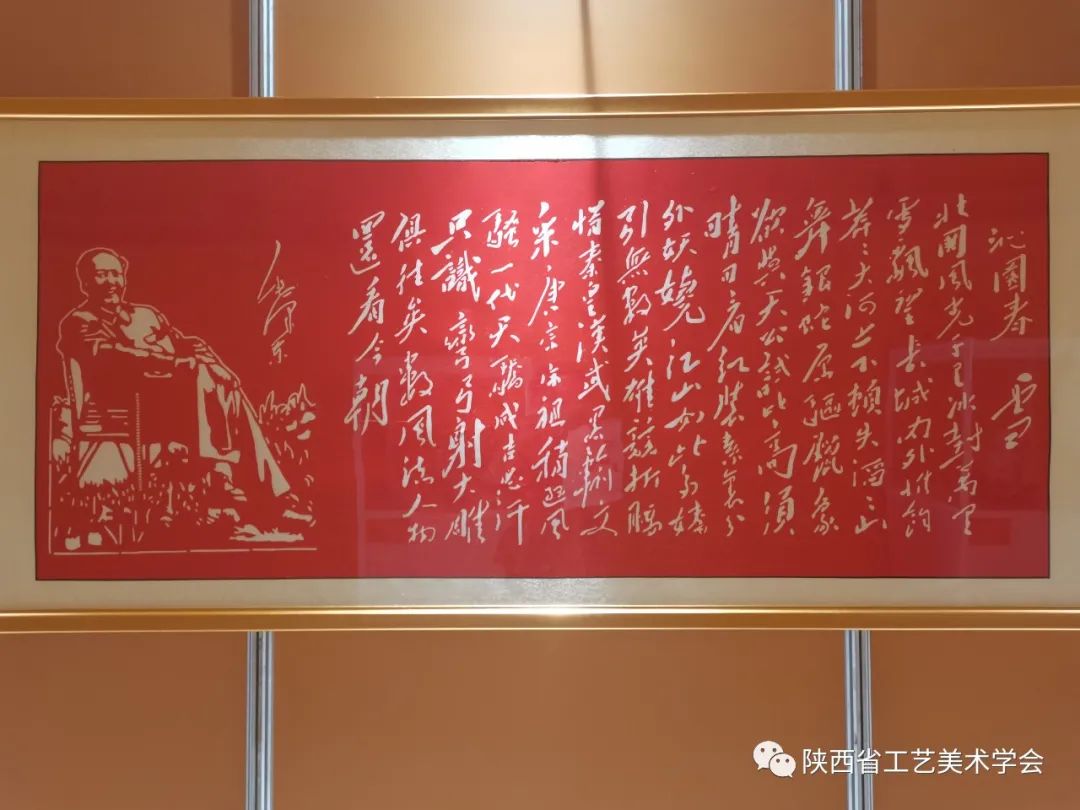 沁園春 雪
北國風光千里冰封萬里
雪飄望長城內外惟餘
莽〻大河上下頓失滔〻山
舞銀蛇原驅臘象
欲與天公試比高須
晴日看紅裝素裹分
外妖嬈江山如此多嬌
引無數英雄競折腰
惜秦皇漢武畧輸文
采唐宗宋祖稍遜風
騷一代天驕成吉思汗
只識彎弓射大雕
俱往矣數風流人物
還看今朝
毛澤東
陕西省工艺美术学会